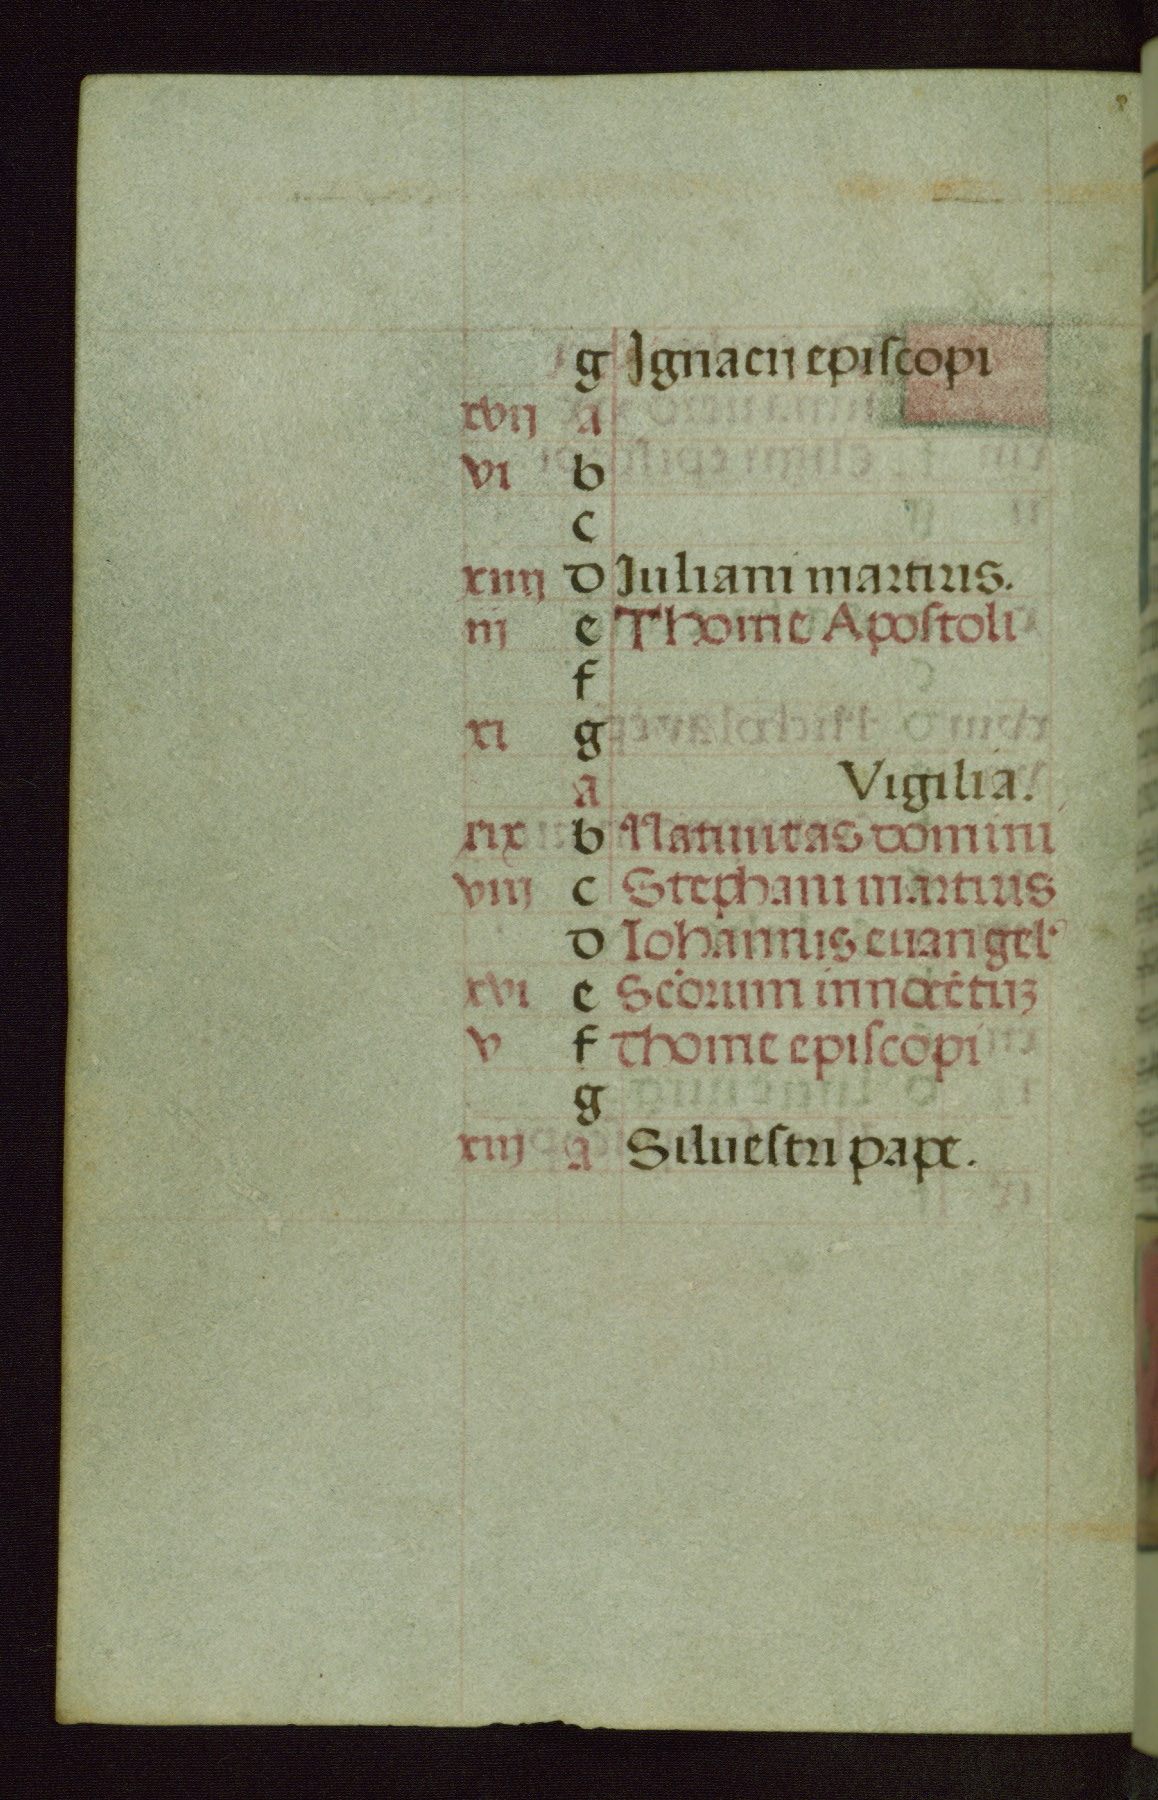 g Ignacij episcopi
xvij a
vi b
c
xiiij d Juliani martiris.
iij e Thome Apostoli
f
xi g
a Vigilia.
xix b Natiuitas domini
viij c Stephani martiris
d Iohannis euangel
xvi e Scōrum innocētuȝ
v f Thome episcopi
g
xiij a Siluestri pape.